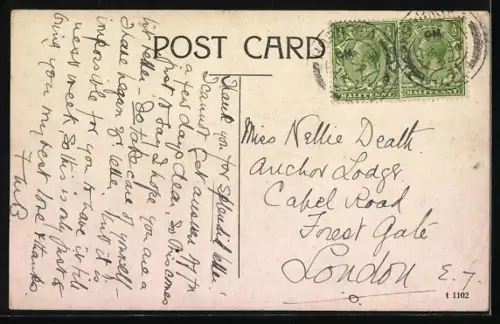 POST CARD
HALFPENNY
HALFPENNY
Thank you for splendid letter.
I cannot get answer off in
a few days dear, so this comes
first to say I hope you are a
bit better - Do take care of yourself -
I have began yr letter but it is
impossible for you to have it till
next week, so this is only just to
bring you my best love & thanks
Miss Nellie Death
Anchor Lodge
Capel Road
Forest Gate
London E. 7.
t 1102